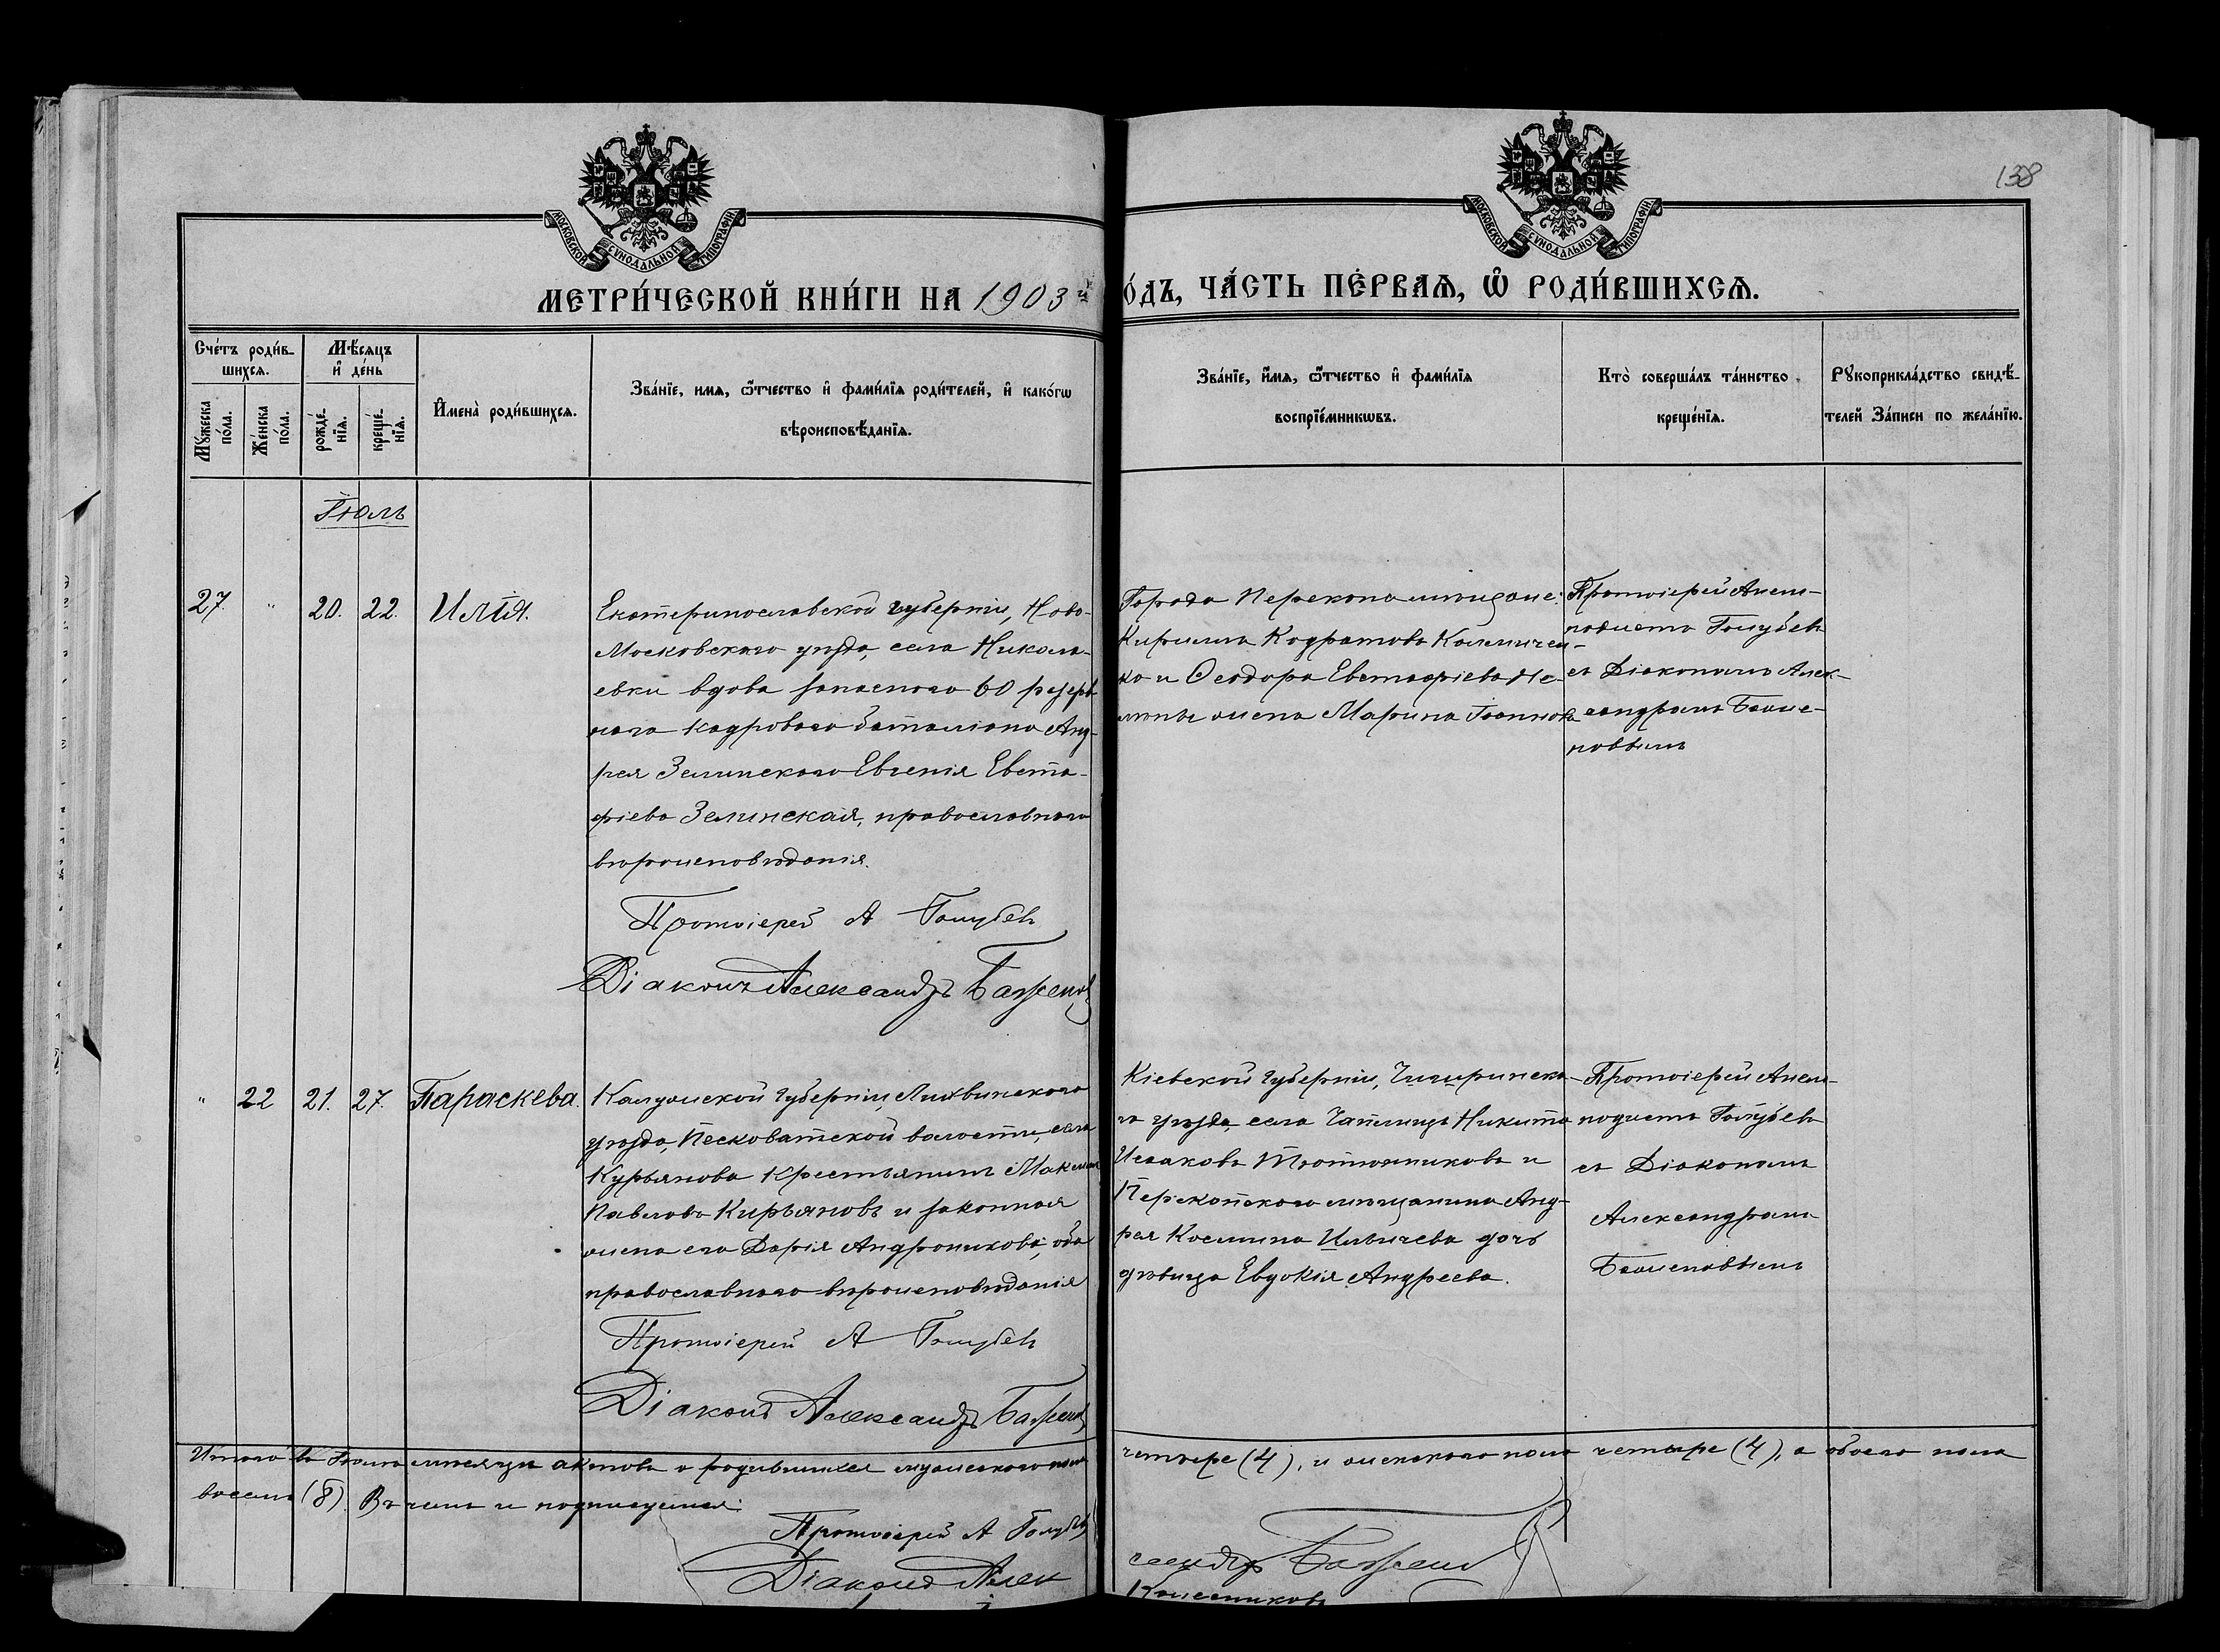 138
МОСКОВСКОЙ СѴНОДАЛЬНОЙ ТИПОГРАФІИ
МОСКОВСКОЙ СѴНОДАЛЬНОЙ ТИПОГРАФІИ
МЕТРИ́ЧЕСКОЙ КНИ́ГИ НА 1903й
О́ДЪ, ЧА́СТЬ ПЕ́РВАѦ, Ѽ РОДИ́ВШИХСѦ.
Сче́тъ роди́в-
шихсѧ.
Мѣ́сѧцъ
и҆ де́нь
Мꙋ́жеска
по́ла.
Же́нска
по́ла.
рожде́-
нїѧ.
креще́-
нїѧ.
И҆мена̀ роди́вшихсѧ.
Зва́нїе, имѧ, ѻ҆́тчество и҆ фами́лїѧ роди́телей, и҆ како́гѡ
вѣроисповѣ́данїѧ.
Зва́нїе, и҆́мѧ, ѻ҆́тчество и҆ фами́лїѧ
воспрїе́мникѡвъ.
Кто̀ соверша́лъ та́инство
креще́нїѧ.
Рꙋкоприкла́дство свидѣ́-
телей За́писи по жела́нїю.
Іюль
27. " 20. 22. Илія.
Екатеринославской губерніи, Ново-
Московскаго уѣзда, села Никола-
евки вдова запаснаго 60 резерв
наго кадроваго баталіона Анд-
рея Зелинскаго Евгенія Евста-
фіева Зелинская, православнаго
вѣроисповѣданія.
Протоіерей А Голубевъ
Діаконъ Александръ Баженов
Города Перекопа мѣщане:
Кириллъ Кодратовъ Калмичен-
ко и Ѳеодора Евстафіева Не-
жена Марина Іоаннова
Протоіерей Анем-
подистъ Голубевъ
съ Діакономъ Алек-
сандромъ Баже-
новымъ
" 22 21. 27. Параскева.
Калужской губерніи, Лихвинскаго
уѣзда, Песковатской волости, села
Курьянова крестьянинъ Максим
Павловъ Кирьяновъ и законная
жена его Дарія Андроникова, оба
православнаго вѣроисповѣданія
Протоіерей А Голубевъ
Діаконъ Александръ Баженов
Кіевской губерніи, Чигиринска-
го уѣзда, села Чаплищъ Никита
Исааковъ Тютюнниковъ и
Перекопскаго мѣщанина Анд-
рея Космина Ильичева дочь
дѣвица Евдокія Андреева.
Протоіерей Анем-
подистъ Голубевъ
съ Діакономъ
Александромъ
Баженовымъ
Итого въ Іюлѣ мѣсяцѣ актовъ о родившихся мужескаго пола четыре (4), и женскаго пола четыре (4), а обоего пола
восемь (8). Въ чемъ и подписуемся:
Протоіерей А Голубев
Діаконъ Александръ Баженов